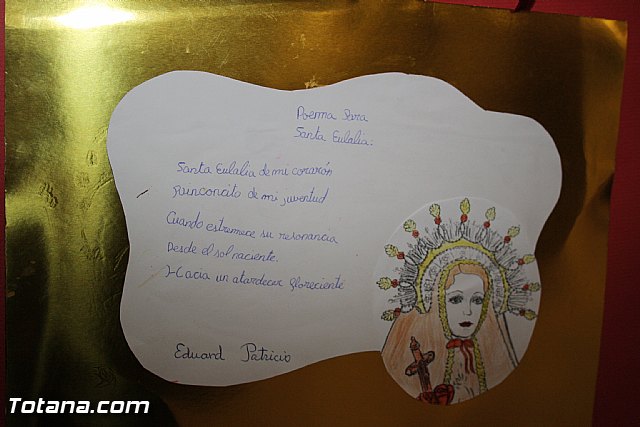 Poema Para
Santa Eulalia:
Santa Eulalia de mi corazón
Rinconcito de mi juventud
Cuando estremece su resonancia
Desde el sol naciente.
Hacia un atardecer floreciente
Eduard Patricio
Totana.com